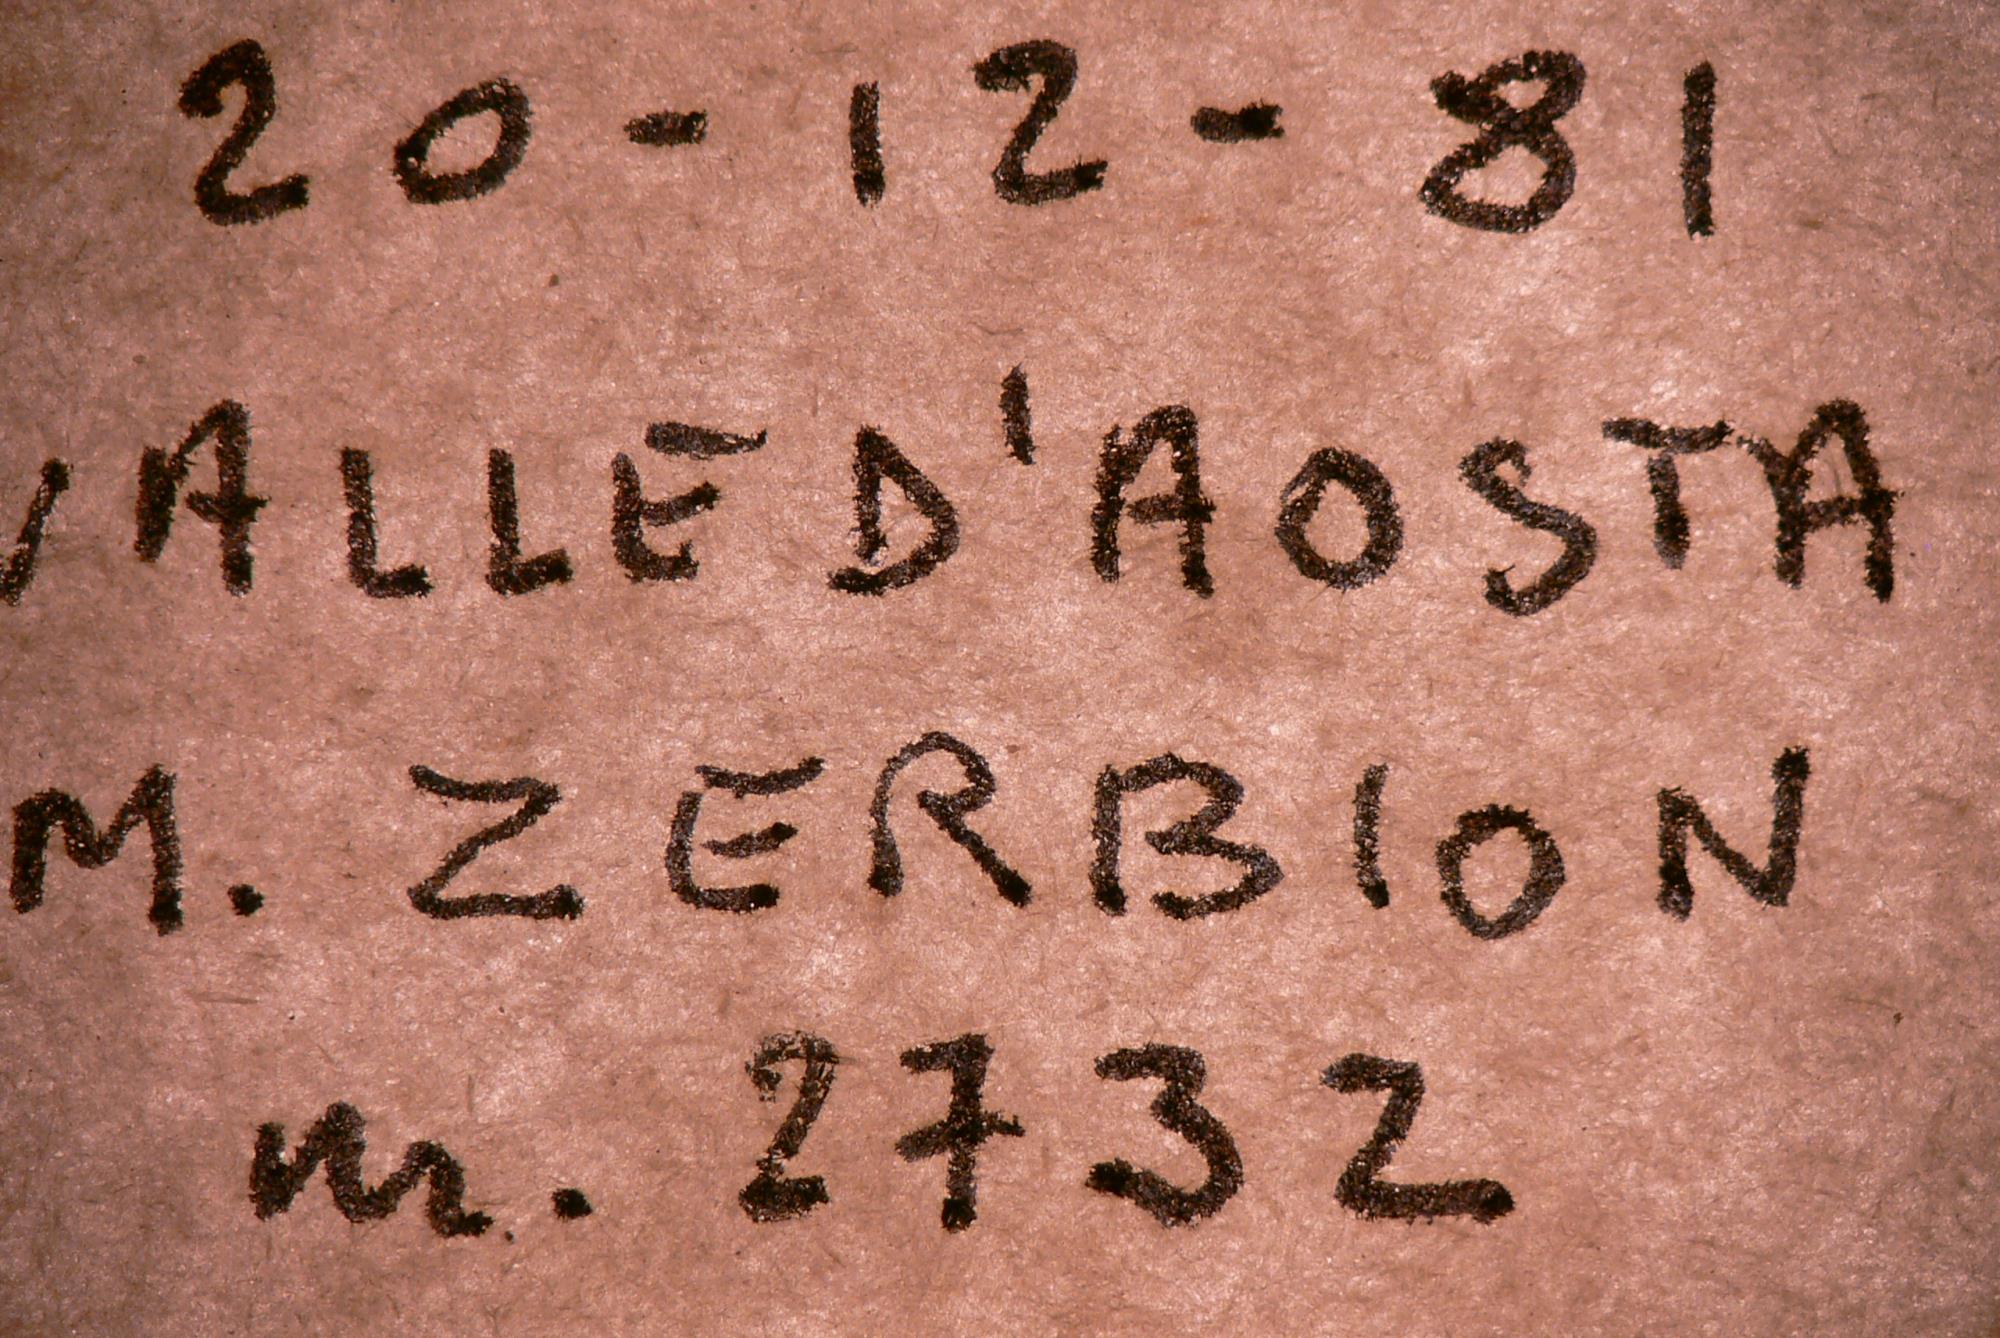 20-12-81
VALLE D'AOSTA
M. ZERBION
m. 2732